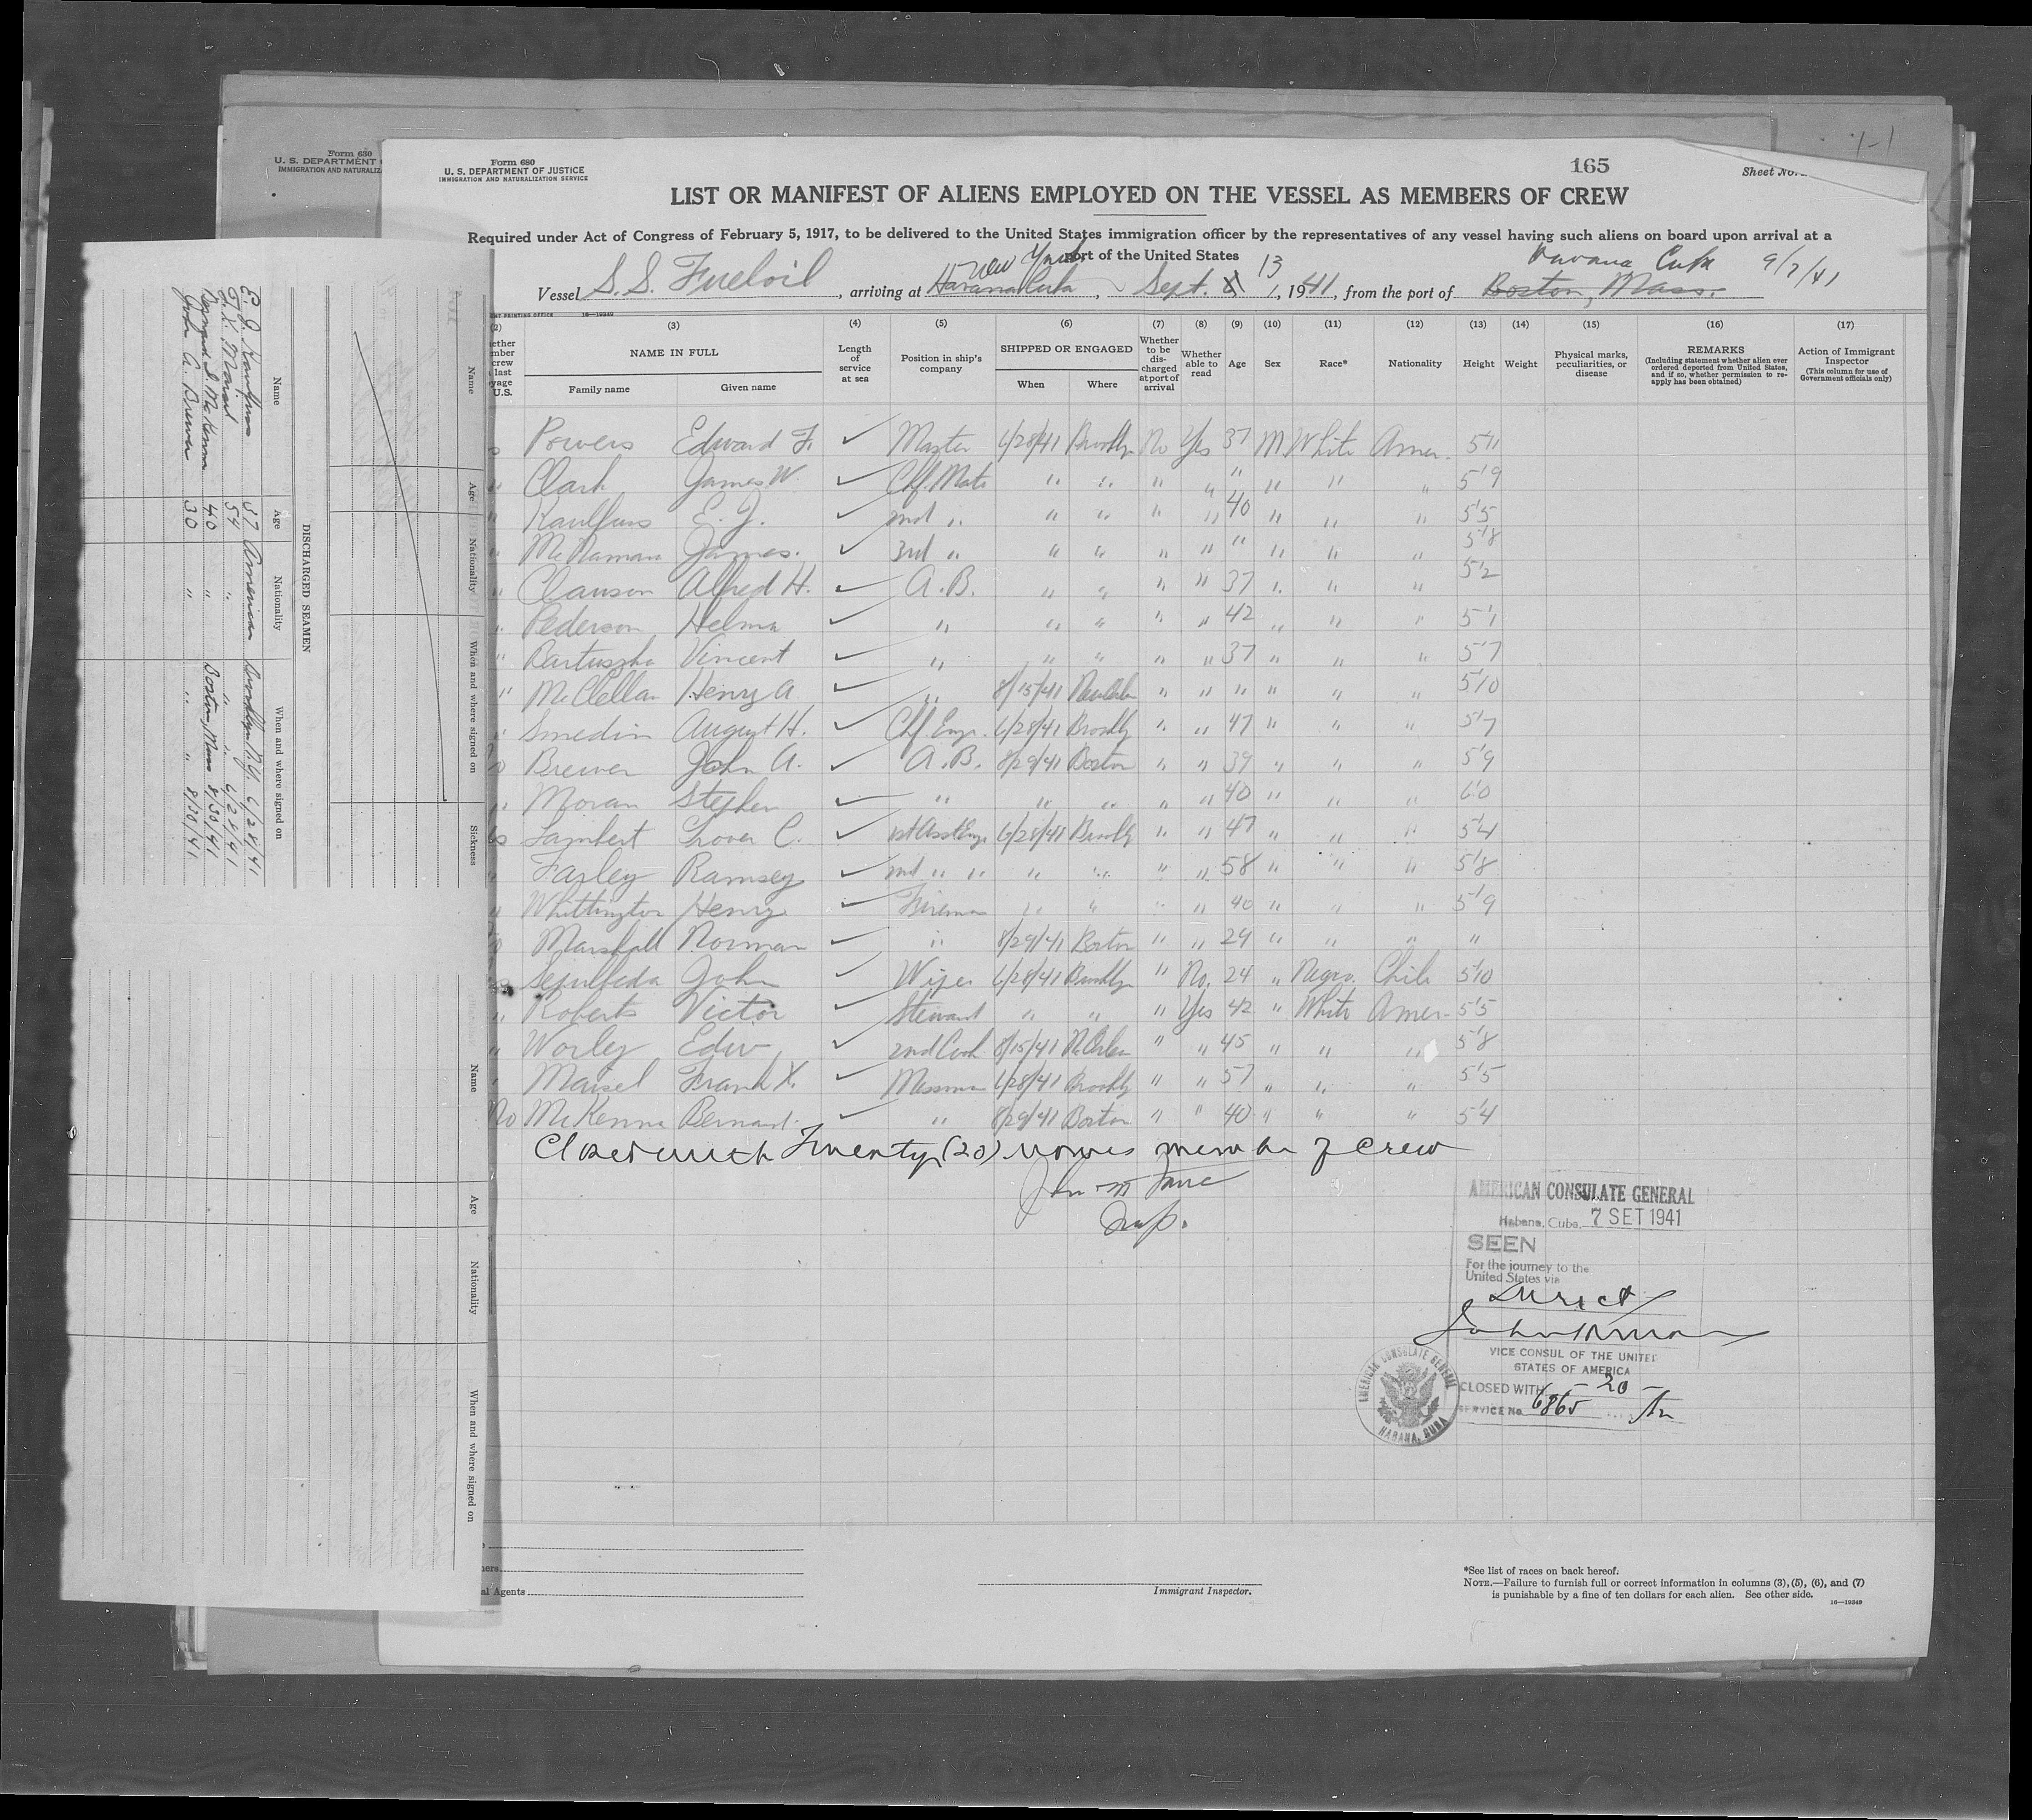 1-1
Form 630
U. S. DEPARTMENT
IMMIGRATION AND NATURALIZ
Form 680
U. S. DEPARTMENT OF JUSTICE
IMMIGRATION AND NATURALIZATION SERVICE
165
Sheet No.
LIST OR MANIFEST OF ALIENS EMPLOYED ON THE VESSEL AS MEMBERS OF CREW
Required under Act of Congress of February 5, 1917, to be delivered to the United States immigration officer by the representatives of any vessel having such aliens on board upon arrival at a
port of the United States
New York 13 Havana Cuba 9/7/41
Vessel S.S. Fueloil, arriving at Havana Cuba, Sept. 1, 1941, from the port of Boston, Mass.
(2) (3) (4) (5) (6) (7) (8) (9) (10) (11) (12) (13) (14) (15) (16) (17)
NAME IN FULL
Family name Given name
Length of service at sea
Position in ship's company
SHIPPED OR ENGAGED
When Where
Whether to be discharged at port of arrival
Whether able to read
Age Sex Race* Nationality Height Weight
Physical marks, peculiarities, or disease
REMARKS
(Including statement whether alien ever ordered deported from United States, and if so, whether permission to reapply has been obtained)
Action of Immigrant Inspector
(This column for use of Government officials only)
Powers Edward F. ✓ Master 6/28/41 Brooklyn No Yes 37 M White Amer. 5'11
" Clark James W. ✓ Chf. Mate " " " " " " " " 5'9
" Kaulfuss E. J. ✓ 2nd " " " " " 40 " " " 5'5
" McNamara James. ✓ 3rd " " " " " " " " " 5'8
" Clauson Alfred H. ✓ A.B. " " " " 37 " " " 5'2
" Pederson Helma ✓ " " " " " 42 " " " 5'1
" Vincent ✓ " " " " " 37 " " " 5'7
" McClellan Henry A ✓ " 8/15/41 " " " " " " 5'10
" Smedin August H. ✓ Chf. Engr. 6/28/41 Brooklyn " " 47 " " " 5'7
Brewer John A. ✓ A.B. 8/29/41 Boston " " 39 " " " 5'9
" Moran Stephen ✓ " " " " " 40 " " " 6'0
Lambert Grover C. ✓ 1st Asst Engr 6/28/41 Brooklyn " " 47 " " " 5'4
" Farley Ramsey ✓ 2nd " " " " " " 58 " " " 5'8
" Whittington Henry ✓ Fireman " " " " 40 " " " 5'9
Marshall Norman ✓ " 8/29/41 Boston " " 29 " " " "
Sepulbeda John ✓ Wiper 6/28/41 Brooklyn " No. 24 " Negro. Chile 5'10
" Roberts Victor ✓ Steward " " " Yes 42 " White Amer. 5'5
" Worley Edw ✓ 2nd Cook 8/15/41 N. Orlean " " 45 " " " 5'8
" Maisel Frank X. ✓ Messman 6/28/41 Brooklyn " " 57 " " " 5'5
No McKenna Bernard. ✓ " 8/29/41 Boston " " 40 " " " 5'4
Closed with Twenty (20) names member of crew
Insp.
AMERICAN CONSULATE GENERAL
Habana, Cuba, 7 SET 1941
SEEN
For the journey to the
United States via
Direct
VICE CONSUL OF THE UNITED
STATES OF AMERICA
CLOSED WITH - 20 -
SERVICE No. 6865
AMERICAN CONSULATE GENERAL
HABANA, CUBA
al Agents
Immigrant Inspector.
*See list of races on back hereof.
NOTE.—Failure to furnish full or correct information in columns (3), (5), (6), and (7)
is punishable by a fine of ten dollars for each alien. See other side.
16—19349
DISCHARGED SEAMEN
Name Age Nationality When and where signed on
E. J. Kaulfuss 37 American Brooklyn N.Y. 6/28/41
F. X. Maisel 54 " " " 6/28/41
Bernard J. McKenna 40 " Boston, Mass 8/30/41
John A. Brewer 30 " " " 8/30/41
Name Age Nationality When and where signed on Sickness
Name Age Nationality When and where signed on